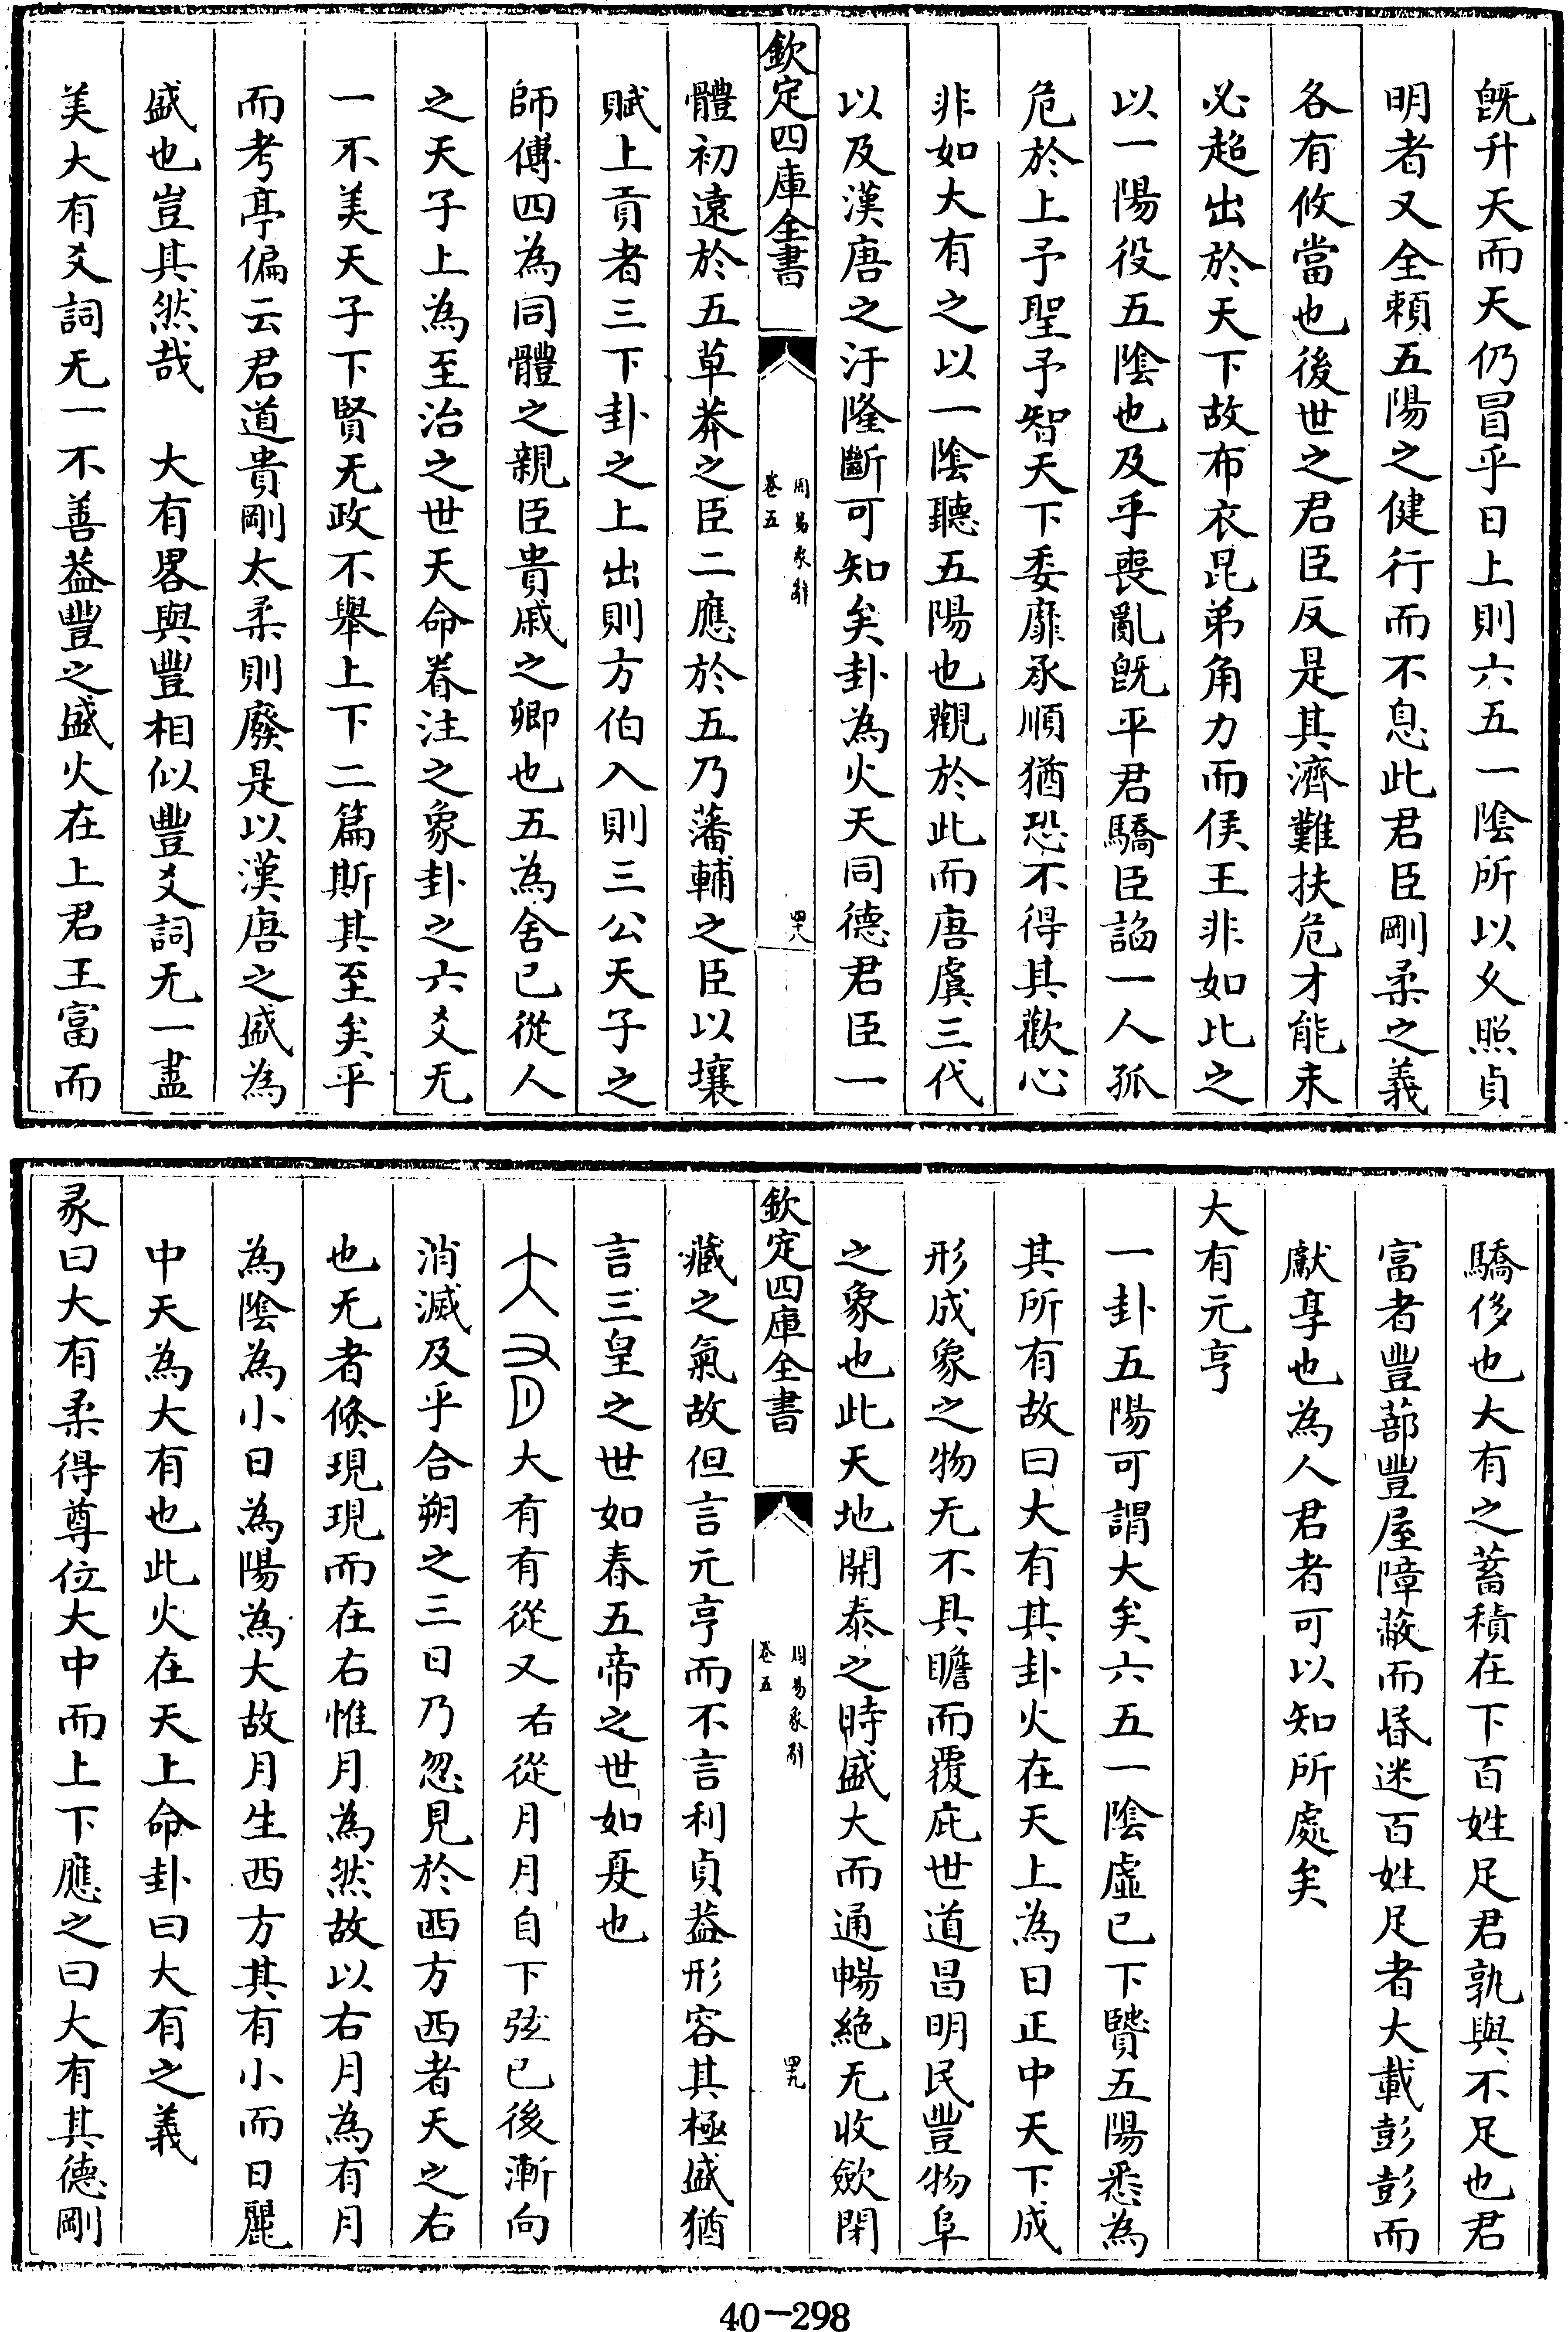 既升天而天仍冒乎日上則六五一陰所以乂照貞
明者又全賴五陽之健行而不息此君臣剛柔之義
各有攸當也後世之君臣反是其濟難扶危才能未
必超出於天下故布衣昆弟角力而侯王非如比之
以一陽役五陰也及乎喪亂旣平君驕臣諂一人孤
危於上予聖予智天下委靡承順猶恐不得其歡心
非如大有之以一陰聽五陽也觀於此而唐虞三代
以及漢唐之汙隆斷可知矣卦為火天同德君臣一
欽定四庫全書
周易象辭
卷五
四十八
體初遠於五草莽之臣二應於五乃藩輔之臣以壤
賦上貢者三下卦之上出則方伯入則三公天子之
師傅四為同體之親臣貴戚之卿也五為舍已從人
之天子上為至治之世天命眷注之象卦之六爻无
一不美天子下賢无政不舉上下二篇斯其至矣乎
而考亭偏云君道貴剛太柔則廢是以漢唐之盛為
盛也豈其然哉　大有畧與豐相似豐爻詞无一盡
美大有爻詞无一不善葢豐之盛火在上君王富而
驕侈也大有之蓄積在下百姓足君孰與不足也君
富者豐蔀豐屋障蔽而昏迷百姓足者大載彭彭而
獻享也為人君者可以知所處矣
大有元亨
一卦五陽可謂大矣六五一陰虛已下賢五陽悉為
其所有故曰大有其卦火在天上為日正中天下成
形成象之物无不具瞻而覆庇世道昌明民豐物阜
之象也此天地開泰之時盛大而通暢絶无收歛閉
欽定四庫全書
周易象辭
卷五
四十九
藏之氣故但言元亨而不言利貞葢形容其極盛猶
言三皇之世如春五帝之世如夏也
大有大有有從又右從月月自下弦已後漸向
消滅及乎合朔之三日乃忽見於西方西者天之右
也无者倐現現而在右惟月為然故以右月為有月
為陰為小日為陽為大故月生西方其有小而日麗
中天為大有也此火在天上命卦曰大有之義
彖曰大有柔得尊位大中而上下應之曰大有其德剛
40-298